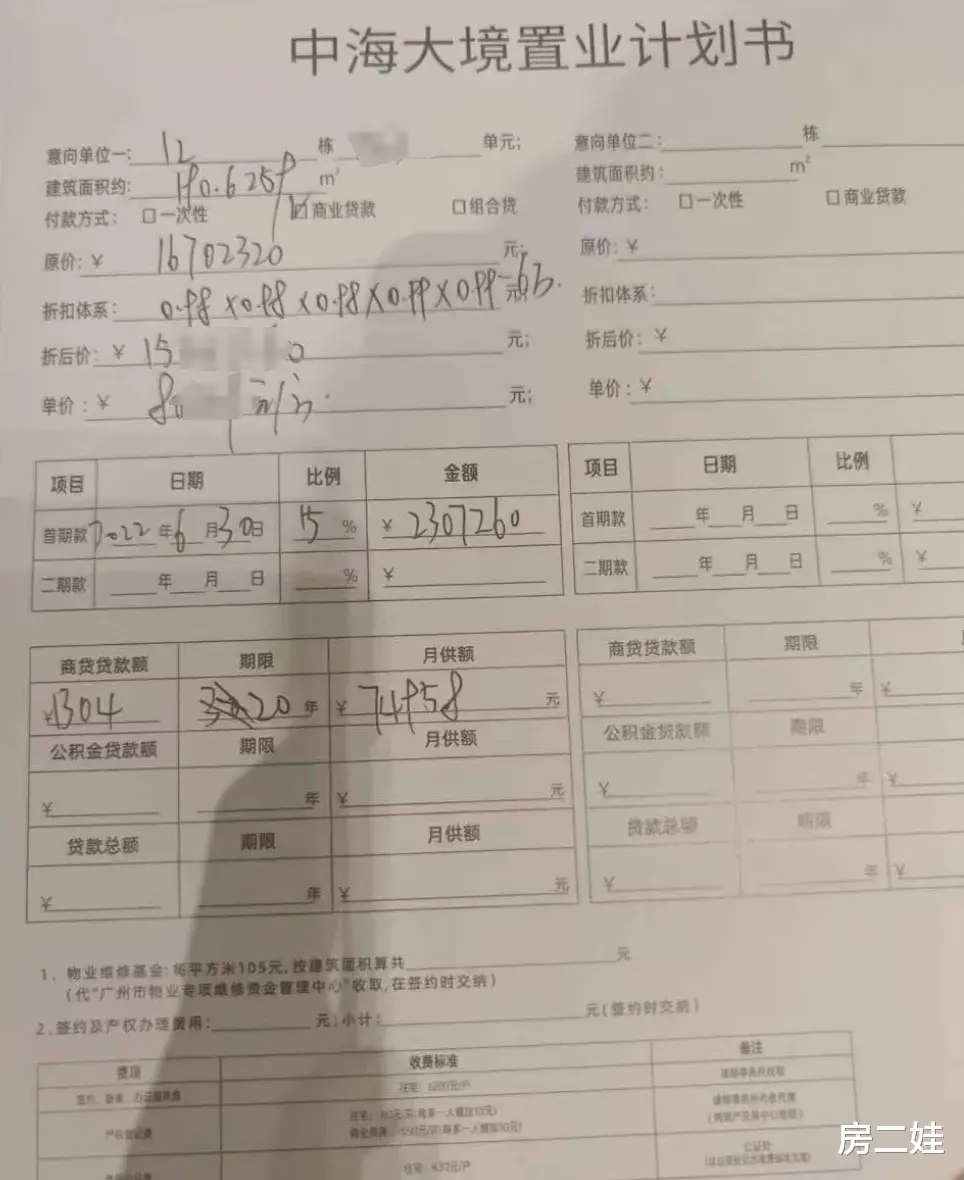 中海大境置业计划书
意向单位一: 12 栋 单元; 意向单位二: 栋
建筑面积约: 190.6259 m² 建筑面积约: m²
付款方式: □一次性 ☑商业贷款 □组合贷 付款方式: □一次性 □商业贷款
原价: ¥ 16702320 元; 原价: ¥
折扣体系: 0.98×0.98×0.98×0.99×0.99 元; 折扣体系:
折后价: ¥ 15 0 元; 折后价: ¥
单价: ¥ 8 元; 单价: ¥
项目 日期 比例 金额 项目 日期 比例
首期款 2022年6月30日 15% ¥2307260 首期款 年 月 日 % ¥
二期款 年 月 日 % ¥ 二期款 年 月 日 % ¥
商贷贷款额 期限 月供额 商贷贷款额 期限
¥1304 20年 ¥74958元 ¥ 年 ¥
公积金贷款额 期限 月供额 公积金贷款额 期限
¥ 年 ¥ 元 ¥ 年 ¥
贷款总额 期限 月供额 贷款总额 期限
¥ 年 ¥ 元 ¥ 年 ¥
1. 物业维修基金: 每平方米105元, 按建筑面积算共 元
(代"广州市物业专项维修资金管理中心"收取, 在签约时交纳)
2. 签约及产权办理费用: 元; 小计: 元(签约时交纳)
费项 收费标准 备注
住宅: 1200元/户
产权登记费
公证处
住宅: 430元/户
房二娃